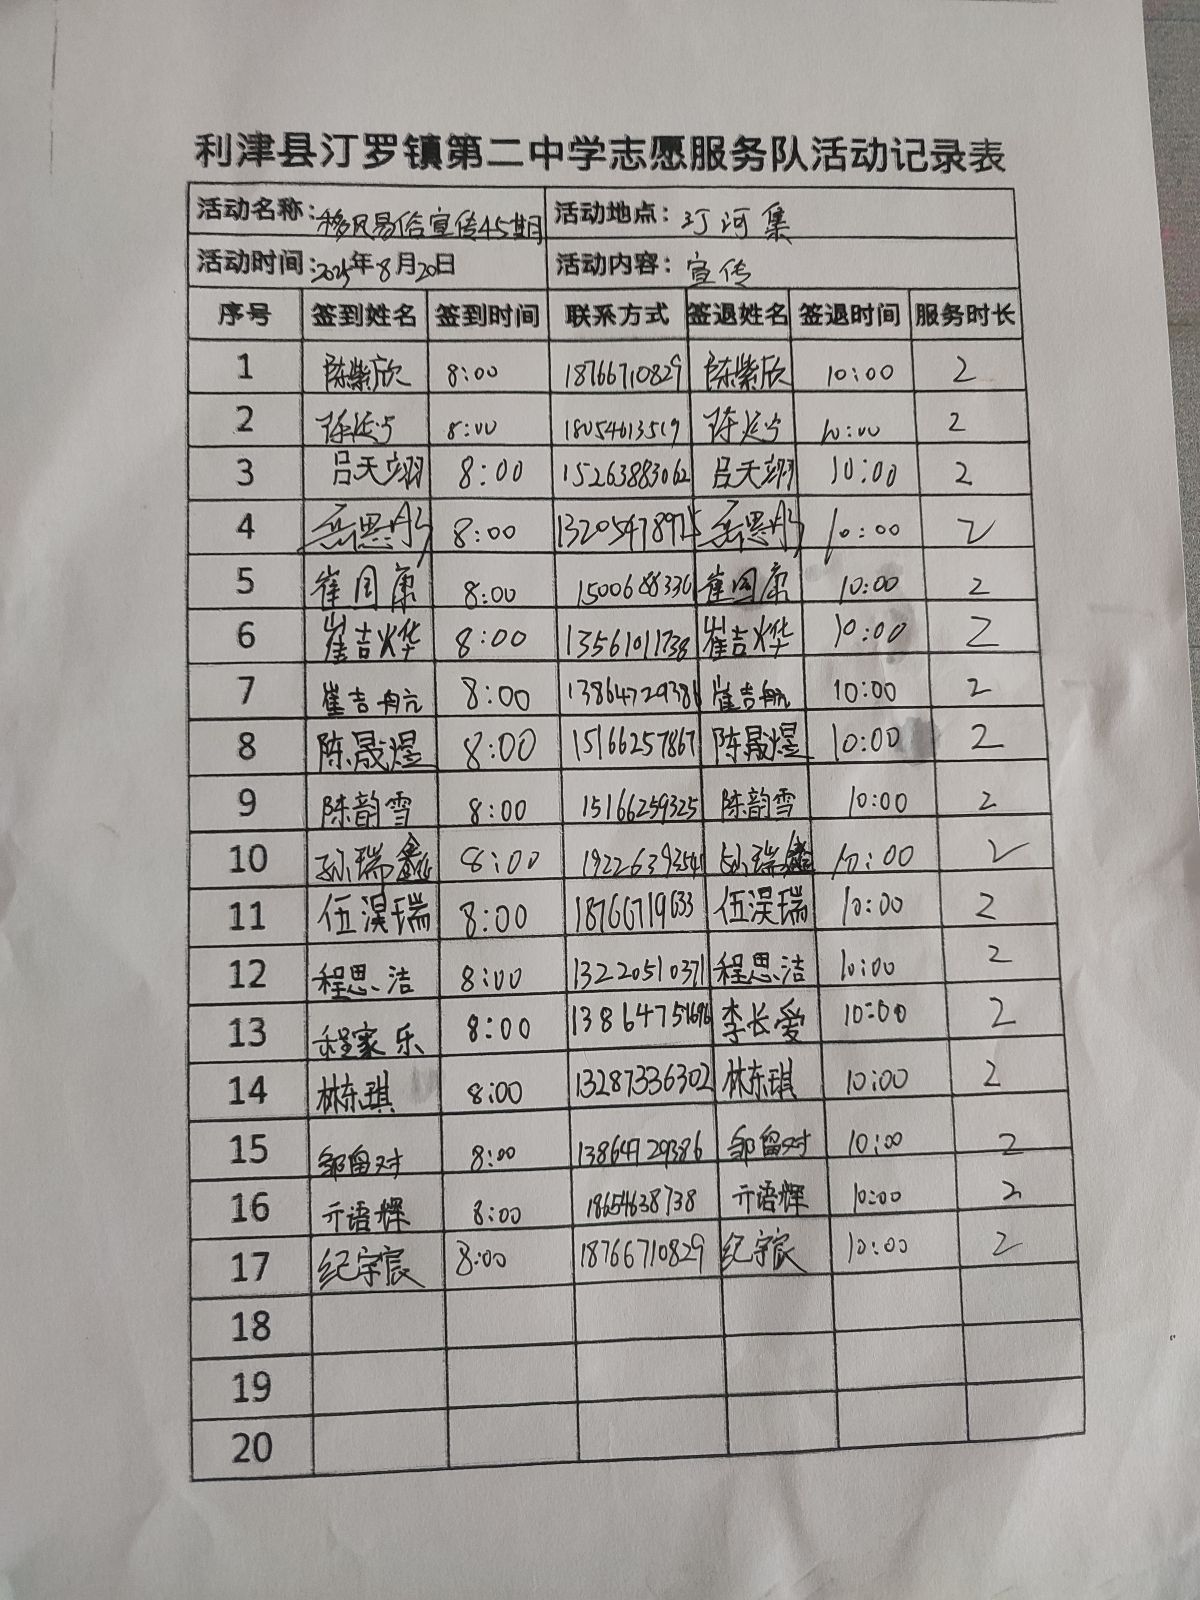 利津县汀罗镇第二中学志愿服务队活动记录表
活动名称:移风易俗宣传45期 活动地点: 汀河集
活动时间:2025年8月20日 活动内容: 宣传
序号 签到姓名 签到时间 联系方式 签退姓名 签退时间 服务时长
1 陈紫欣 8:00 18766710829 陈紫欣 10:00 2
2 陈延宁 8:00 18054613519 陈延宁 10:00 2
3 吕天翊 8:00 15263883062 吕天翊 10:00 2
4 岳思彤 8:00 13205478975 岳思彤 10:00 2
5 崔国康 8:00 1500688336 崔国康 10:00 2
6 崔吉烨 8:00 13561011738 崔吉烨 10:00 2
7 崔吉航 8:00 13864729386 崔吉航 10:00 2
8 陈晟煜 8:00 15166257867 陈晟煜 10:00 2
9 陈韵雪 8:00 15166259325 陈韵雪 10:00 2
10 孙瑞鑫 8:00 孙瑞鑫 10:00 2
11 伍淏瑞 8:00 18766719633 伍淏瑞 10:00 2
12 程思洁 8:00 13220510371 程思洁 10:00 2
13 程家乐 8:00 13864751696 李长爱 10:00 2
14 林东琪 8:00 13287336302 林东琪 10:00 2
15 邹留对 8:00 13864729386 邹留对 10:00 2
16 亓语辉 8:00 18654638738 亓语辉 10:00 2
17 纪宇宸 8:00 18766710829 纪宇宸 10:00 2
18
19
20